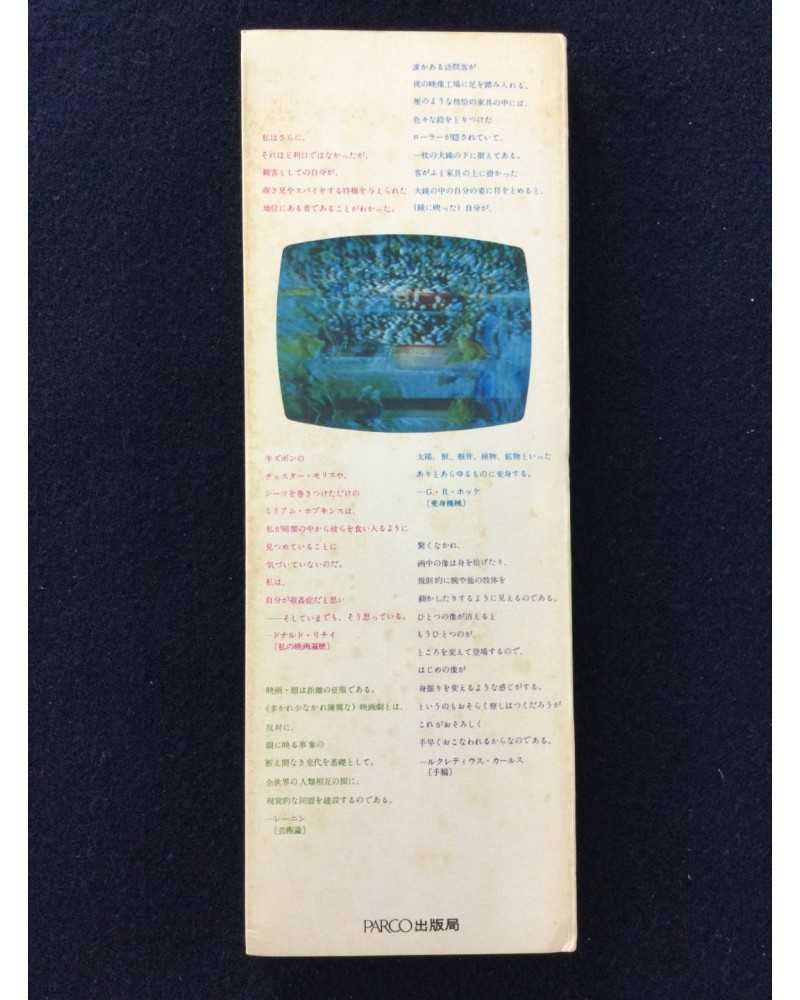 私はさらに、
それほど利口ではなかったが、
観客としての自分が、
覗き見やスパイをする特権を与えられた
地位にある者であることがわかった。
牛ズボンの
チェスター・モリスや、
シーツを巻きつけただけの
ミリアム・ホプキンスは、
私が暗闇の中から彼らを食い入るように
見つめていることに
気づいていないのだ。
私は、
自分が窃姦症だと思い
——そしていまでも、そう思っている。
—ドナルド・リチイ
［私の映画遍歴］
映画・眼は距離の征服である。
(多かれ少なかれ陳腐な) 映画劇とは、
反対に、
眼に映る事象の
断え間なき交代を基礎として、
全世界の人類相互の間に、
視覚的な同盟を建設するのである。
—レーニン
［芸術論］
誰かある訪問客が
彼の映像工場に足を踏み入れる。
色々な絵をとりつけた
ローラーが隠されていて、
一枚の大鏡の下に据えてある。
客がふと家具の上に掛かった
大鏡の中の自分の姿に目をとめると、
(鏡に映った) 自分が、
太陽、獣、骸骨、植物、鉱物といった
ありとあらゆるものに変身する。
—G・R・ホッケ
［変身機械］
驚くなかれ、
画中の像は身を投げたり、
規則的に腕や他の肢体を
動かしたりするように見えるのである。
ひとつの像が消えると
もうひとつのが、
ところを変えて登場するので、
はじめの像が
身振りを変えるような感じがする。
というのもおそらく察しはつくだろうが
これがおそろしく
手早くおこなわれるからなのである。
—ルクレティウス・カールス
［手稿］
PARCO出版局